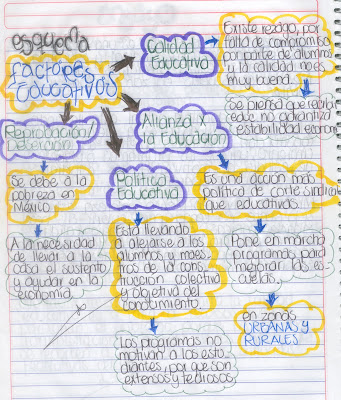 esquema
Factores
Educativos
Calidad
Educativa
Existe rezago, por
falta de compromiso
por parte de alumnos
y la calidad no es
muy buena.
Se piensa que recibir
educ no garantiza
estabilidad econom
Reprobación/
Deserción
Se debe a la
pobreza en
México
A la necesidad
de llevar a la
casa el sustento
y ayudar en la
economía.
Política
Educativa
Esta llevando
a alejarse a los
alumnos y maes
tros de la cons
trucción colectiva
y objetiva del
conocimiento
Los programas no
motivan a los estu
diantes, por que son
extensos y tediosos
Alianza x
la Educación
Es una acción mas
política de corte sindical
que educativos
Pone en marcha
programas para
mejorar las es
cuelas.
en zonas
URBANAS Y
RURALES